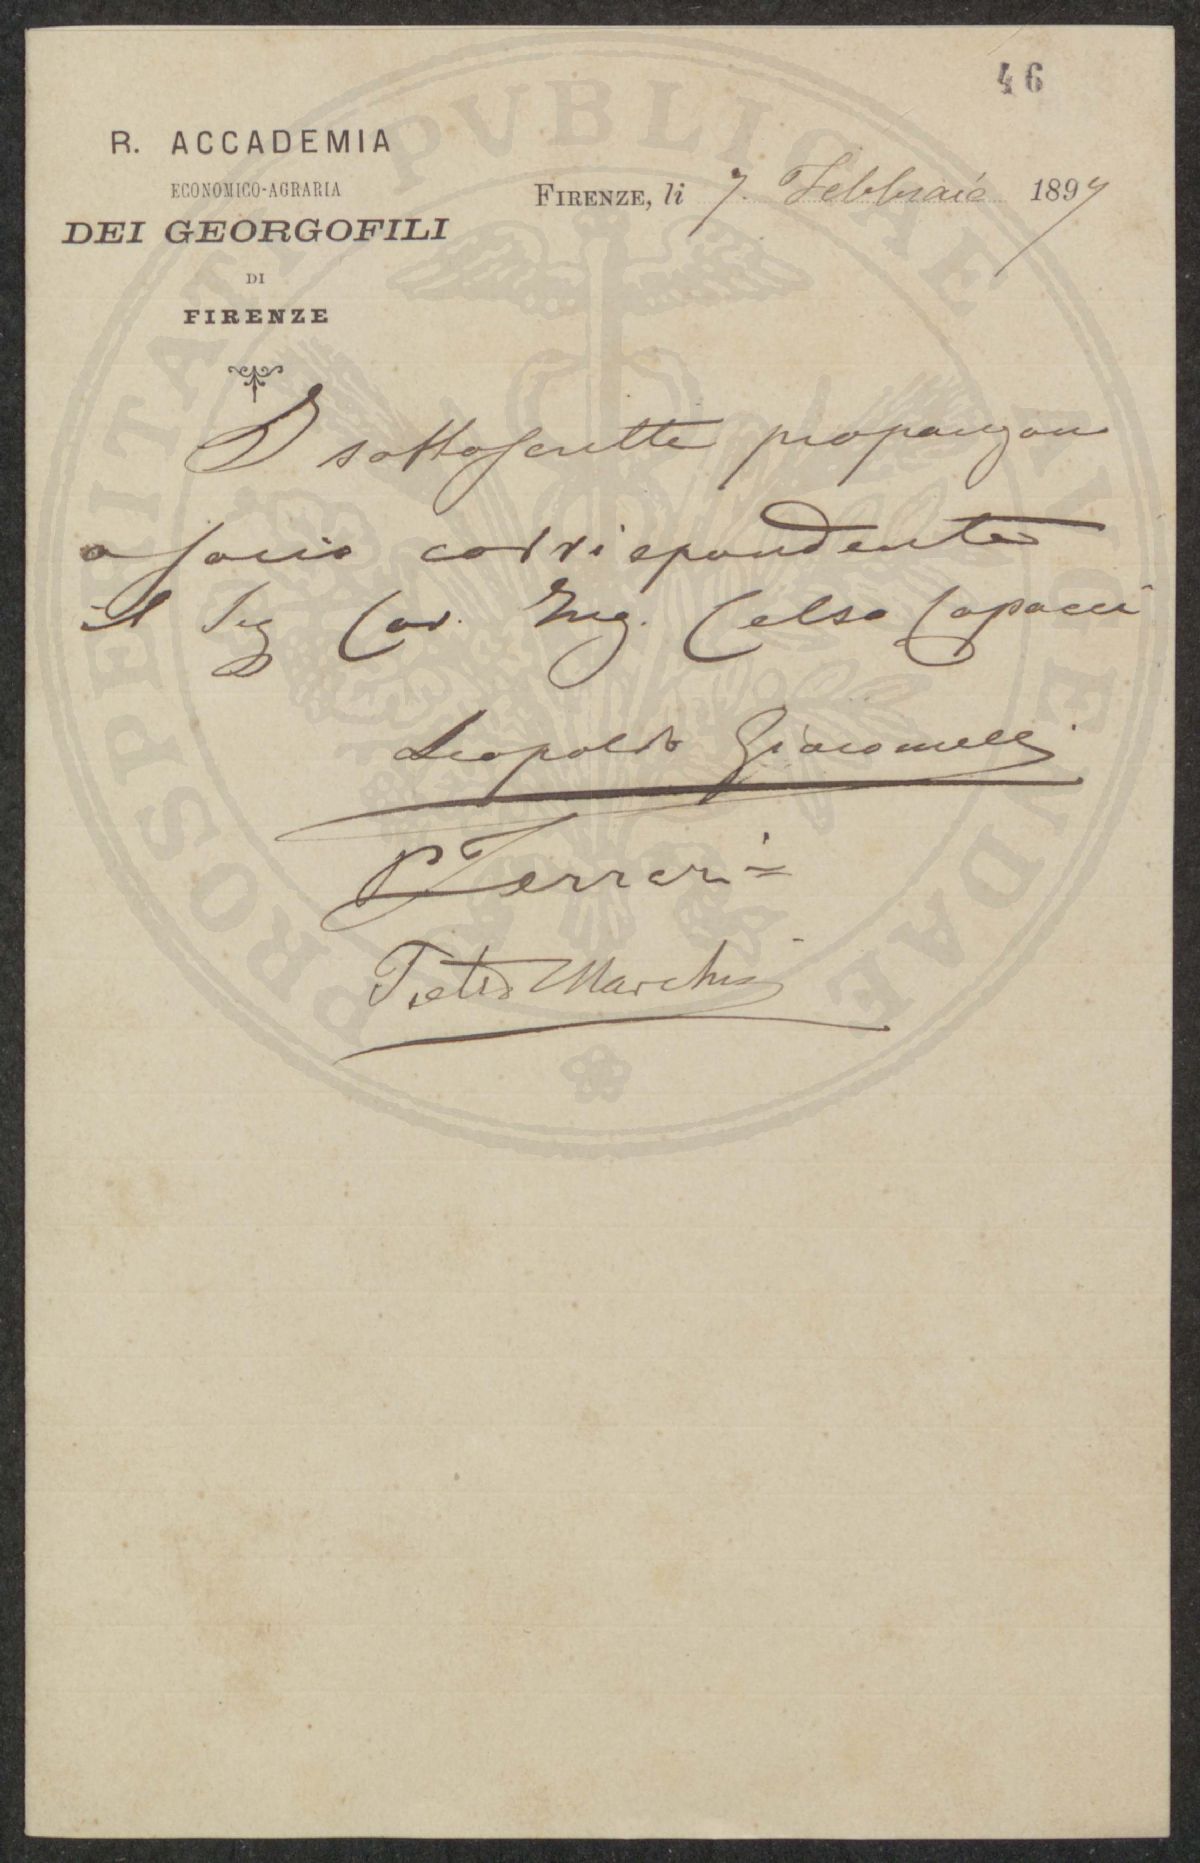 46
R. ACCADEMIA
ECONOMICO-AGRARIA
DEI GEORGOFILI
DI
FIRENZE
FIRENZE, li 7. Febbraio 1897
I sottoscritti propongono
a socio corrispondente
il Sig Cav. Ing. Celso Capacci
Leopoldo Giacomelli
P Ferrari
Pietro Marchi
PROSPERITATI PVBLICAE AVGENDAE